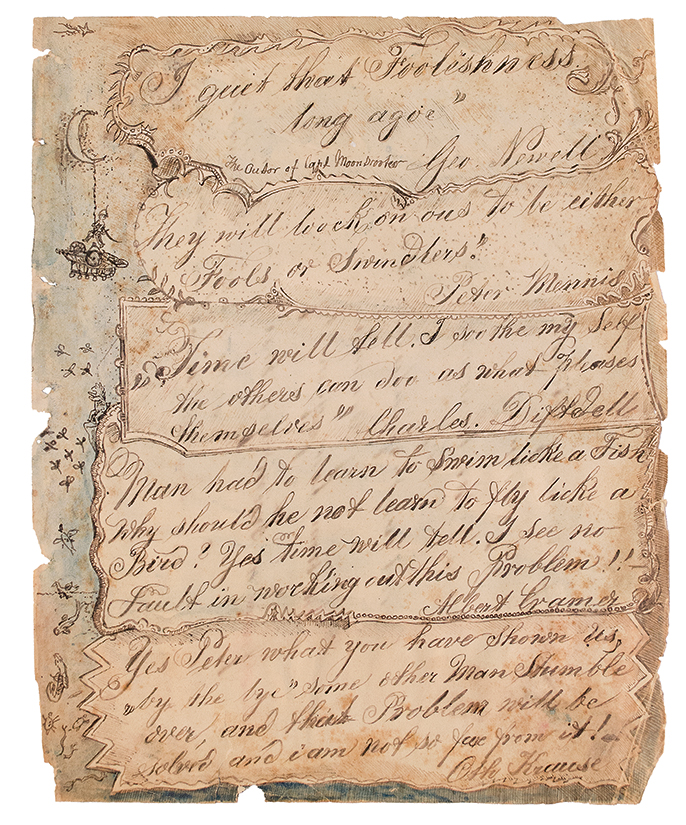 "I quit that Foolishness
long agoe"
The Outor of Capt. Moondrooker Geo. Newell
They will loock on ous to be either
Fools or Swindlers"
Peter Mennis
"Time will tell. I soothe my Self
the others can doo as what pleases
themselves" Charles. Diftdell
Man had to learn to Swim licke a Fish
why should he not learn to fly licke a
Bird? Yes time will tell. I see no
Fault in working out this Problem!!
Albert Cramer
Yes Peter what you have shown us,
"by the bye" some other Man Stumble
over, and that Problem will be
solved, and i am not so far from it!
Otto Krause